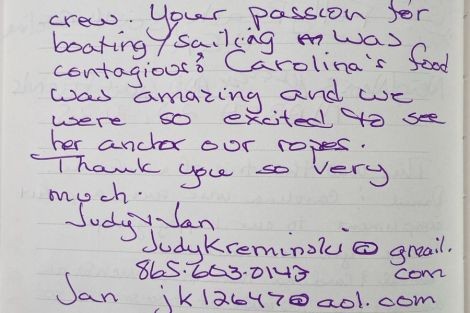 crew. Your passion for
boating/sailing was
contagious! Carolina's food
was amazing and we
were so excited to see
her anchor our ropes.
Thank you so very
much.
Judy & Jan
JudyKreminski@gmail.
865.603.0143 com
Jan jk12647@aol.com